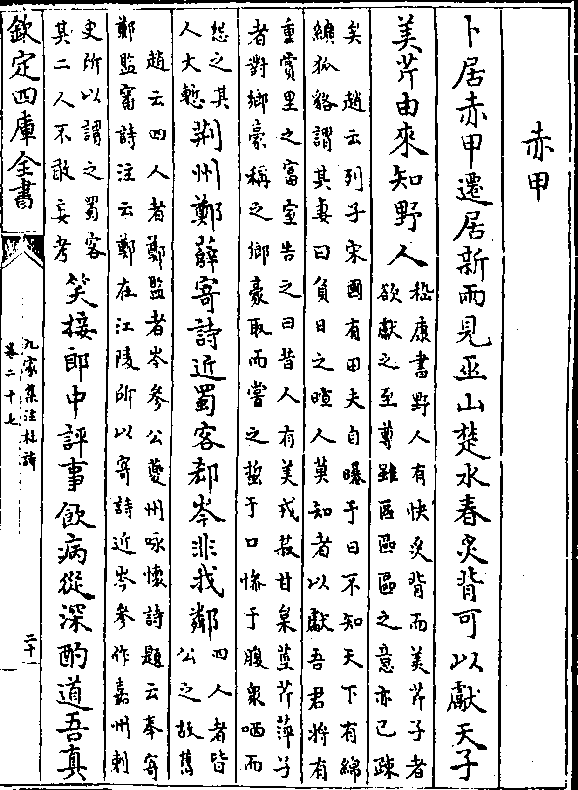 赤甲
卜居赤甲遷居新兩見巫山楚水春炙背可以獻天子
美芹由來知野人
嵇康書野人有快炙背而美芹子者
欲獻之至尊雖區區區之意亦已疎
矣 趙云列子宋國有田夫自曝于日不知天下有綿
纊狐貉謂其妻曰負日之暄人莫知者以獻吾君將有
重賞里之富室告之曰昔人有美戎菽甘枲莖芹萍子
者對鄉豪稱之鄉豪取而嘗之蜇于口慘于腹衆哂而
怨之其
人大慙
荆州鄭薛寄詩近蜀客郄岑非我鄰
四人者皆
公之故舊
趙云四人者鄭監者岑參公夔州咏懷詩題云奉寄
鄭監審詩注云鄭在江陵所以寄詩近岑參作嘉州刺
史所以謂之蜀客
其二人不敢妄考
笑接郎中評事飲病從深酌道吾真
欽定四庫全書
九家集注杜詩
卷二十七
二十一